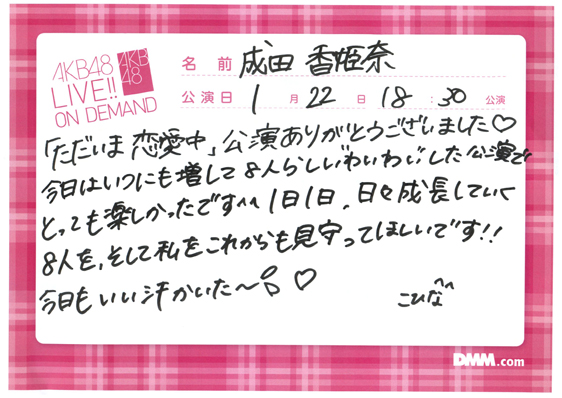 AKB48
LIVE!!
ON DEMAND
AKB
48
名前 成田 香姫奈
公演日 1月22日 18:30公演
「ただいま 恋愛中」公演ありがとうございました♡
今日はいつにも増して8人らしいわいわいした公演で
とっても楽しかったです^^ 1日1日、日々成長していく
8人を、そして私をこれからも見守ってほしいです!!
今日もいい汗かいた〜 ♡
こひな^^
DMM.com